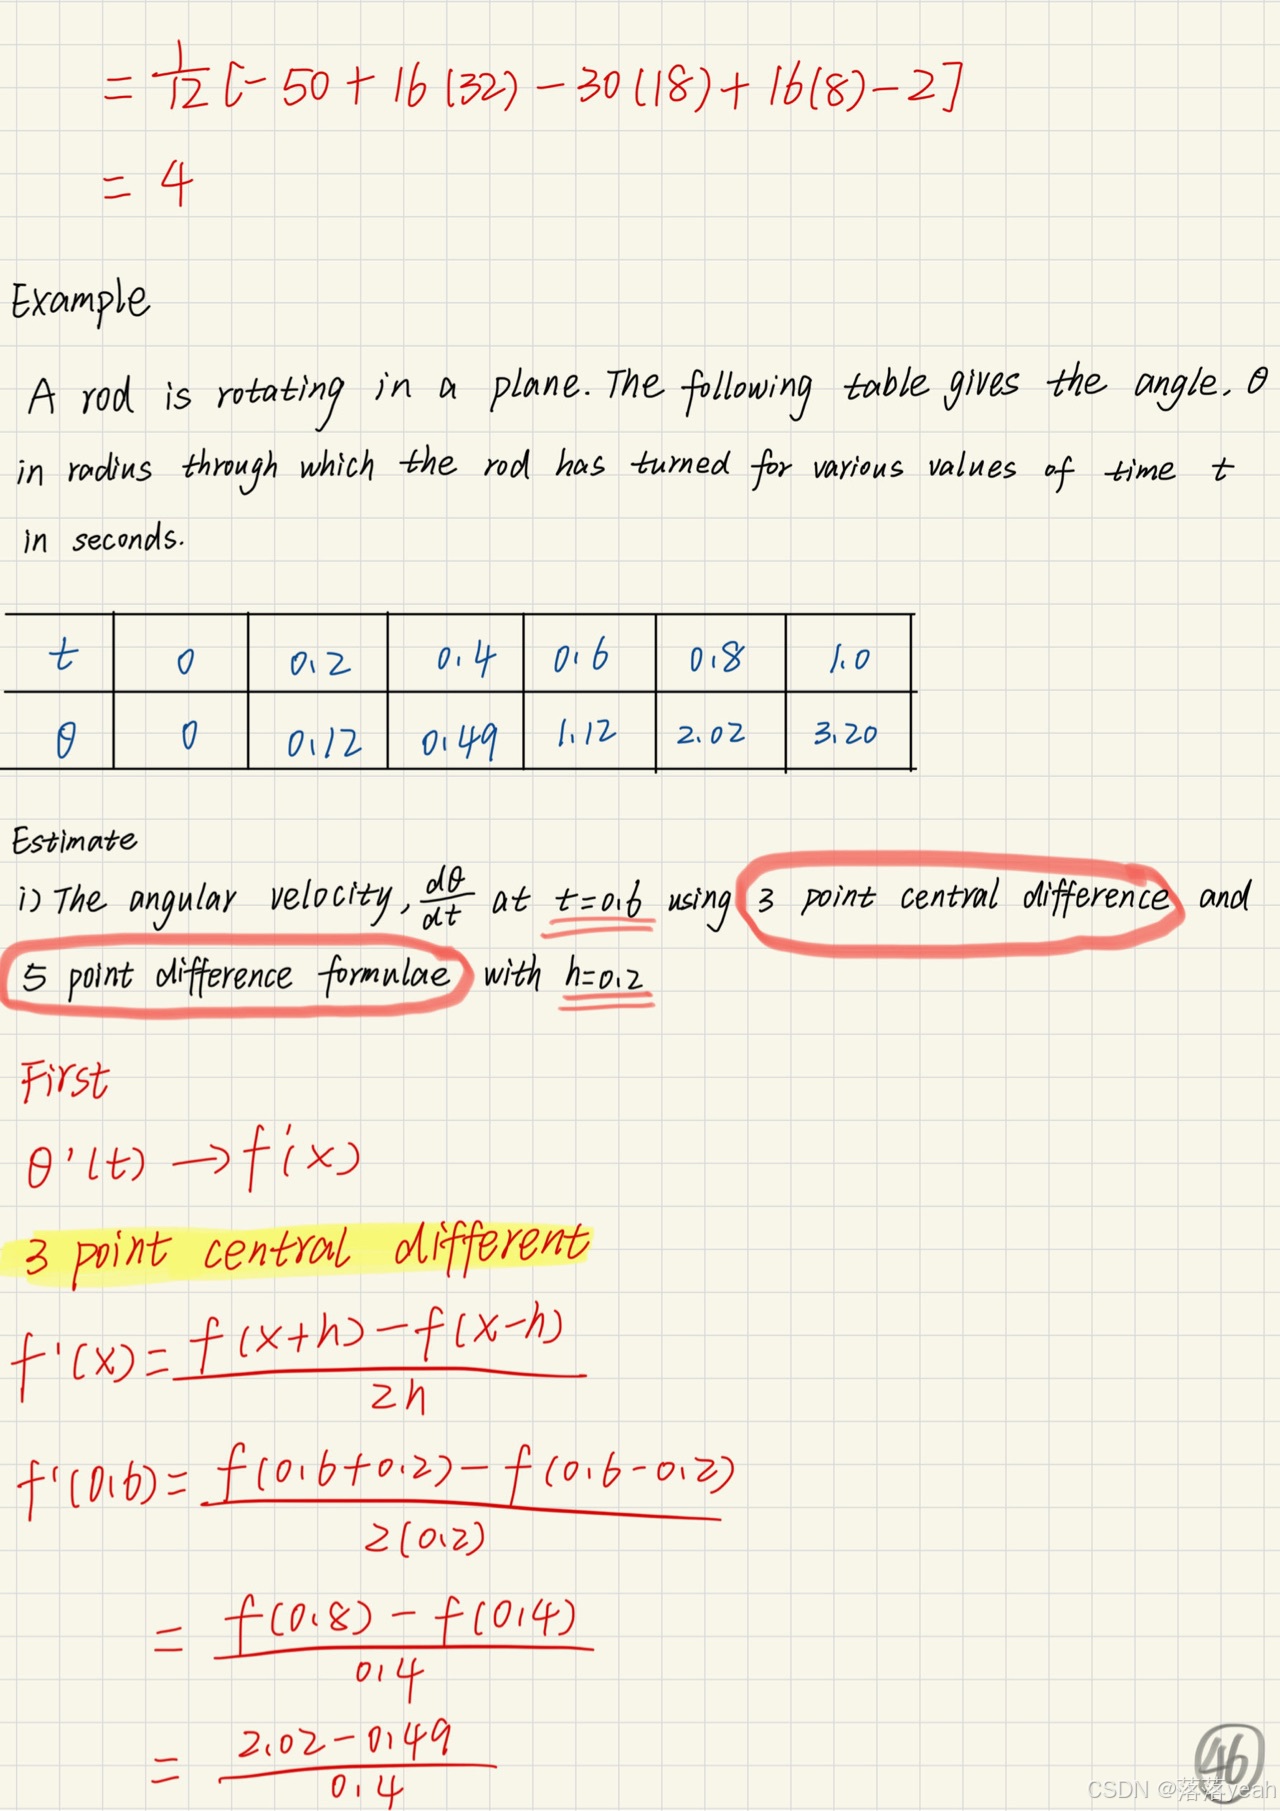 = 1/12 [-50 + 16(32) - 30(18) + 16(8) - 2]
= 4
Example
A rod is rotating in a plane. The following table gives the angle, θ
in radius through which the rod has turned for various values of time t
in seconds.
t 0 0.2 0.4 0.6 0.8 1.0
θ 0 0.12 0.49 1.12 2.02 3.20
Estimate
i) The angular velocity, dθ/dt at t=0.6 using 3 point central difference and
5 point difference formulae with h=0.2
First
θ'(t) → f'(x)
3 point central different
f'(x) = f(x+h) - f(x-h) / 2h
f'(0.6) = f(0.6+0.2) - f(0.6-0.2) / 2(0.2)
= f(0.8) - f(0.4) / 0.4
= 2.02 - 0.49 / 0.4
46
CSDN @落落yeah